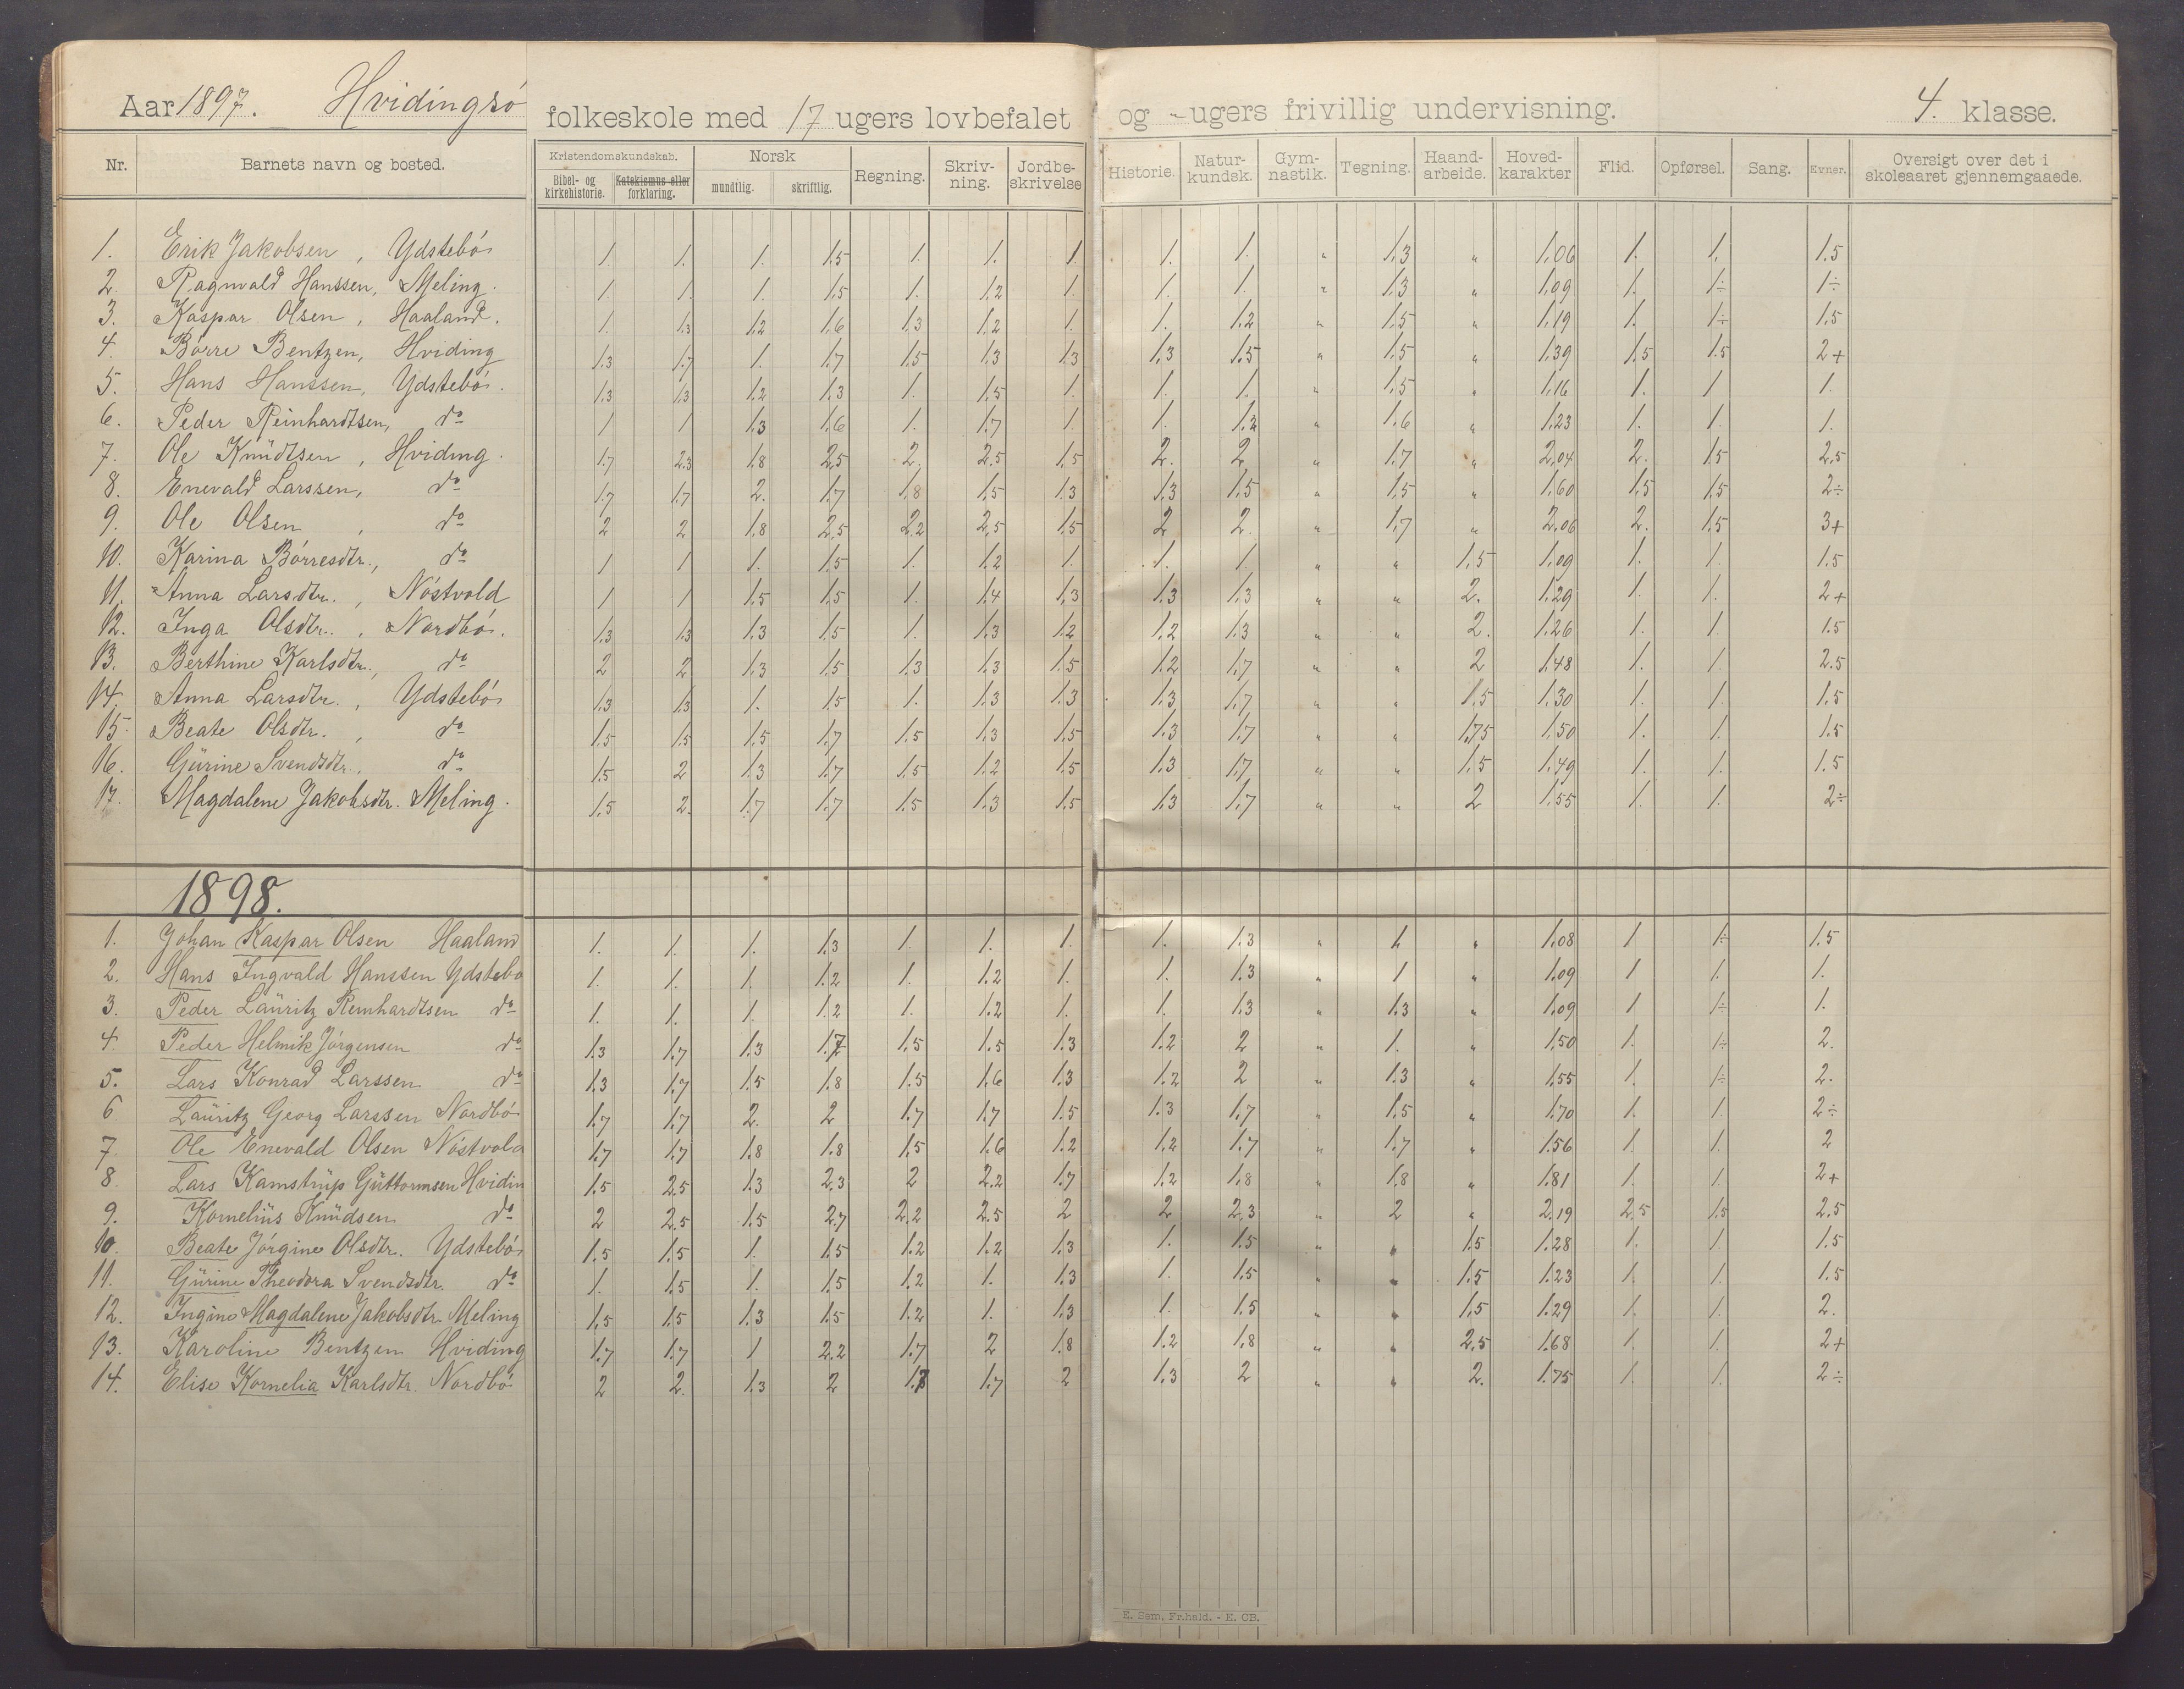 Aar 1897. Hvidingsö folkeskole med 17 ugers lovbefalet og - ugers frivillig undervisning. 4. klasse.
Nr. Barnets navn og bosted. Kristendomskundskab. Bibel- og kirkehistorie. Katekismus eller forklaring. Norsk mundtlig. skriftlig. Regning. Skriv-ning. Jordbe-skrivelse Historie. Natur-kundsk. Gym-nastik. Tegning. Haand-arbeide. Hoved-karakter Flid. Opførsel. Sang. Evner. Oversigt over det i skoleaaret gjennemgaaede.
1. Erik Jakobsen, Ydstebö 1. 1. 1. 1.5 1. 1. 1. 1. 1. " 1.3 " 1.06 1. 1. 1.5
2. Ragnvald Hanssen, Meling. 1. 1. 1. 1.5 1. 1.2 1. 1. 1. " 1.3 " 1.09 1. 1÷ 1÷
3. Kaspar Olsen, Haaland. 1. 1.3 1.2 1.6 1.3 1.2 1. 1. 1.2 " 1.5 " 1.19 1. 1÷ 1.5
4. Börre Bentzen, Hviding 1.3 1.7 1. 1.7 1.5 1.3 1.3 1.3 1.5 " 1.5 " 1.39 1.5 1.5 2+
5. Hans Hanssen, Ydstebö. 1.3 1.3 1.2 1.3 1. 1.5 1. 1. 1. " 1.5 " 1.16 1. 1 1.
6. Peder Reinhardtsen, do 1 1 1.3 1.6 1. 1.7 1 1. 1.2 " 1.6 " 1.23 1. 1. 1.
7. Ole Knudtsen, Hviding. 1.7 2.3 1.8 2.5 2. 2.5 1.5 2. 2 " 1.7 " 2.04 2. 1.5 2.5
8. Enevald Larssen, do 1.7 1.7 2. 1.7 1.8 1.5 1.3 1.3 1.5 " 1.5 " 1.60 1.5 1.5 2÷
9. Ole Olsen, do 2 2 1.8 2.5 2.2 2.5 1.5 2 2. " 1.7 " 2.06 2. 1.5 3+
10. Karina Börresdtr., do 1 1 1. 1.5 1. 1.2 1. 1. 1. " " 1.5 1.09 1. 1. 1.5
11. Anna Larsdtr., Nöstvold 1 1 1.5 1.5 1. 1.4 1.3 1.3 1.3 " " 2. 1.29 1. 1. 2+
12. Inga Olsdtr., Nordbö. 1.3 1.3 1.3 1.5 1. 1.3 1.2 1.2 1.3 " " 2. 1.26 1. 1. 1.5
13. Berthine Karlsdtr., do 2 2 1.3 1.5 1.3 1.3 1.5 1.2 1.7 " " 2 1.48 1. 1. 2.5
14. Anna Larsdtr., Ydstebö 1.3 1.3 1. 1.5 1. 1.3 1.3 1.3 1.7 " " 1.5 1.30 1. 1. 1.5
15. Beate Olsdtr., do 1.5 1.5 1.5 1.7 1.5 1.3 1.5 1.3 1.7 " " 1.75 1.50 1. 1. 1.5
16. Gurine Svendsdtr., do 1.5 2 1.3 1.7 1.5 1.2 1.5 1.3 1.7 " " 1.5 1.49 1. 1. 1.5
17. Magdalene Jakobsdtr. Meling. 1.5 2. 1.7 1.7 1.5 1.3 1.5 1.3 1.7 " " 2 1.55 1. 1. 2÷
1898.
1. Johan Kaspar Olsen Haaland 1. 1. 1. 1.3 1. 1. 1. 1. 1.3 " 1. " 1.08 1 1÷ 1.5
2. Hans Ingvald Hanssen Ydstebö 1. 1. 1. 1.2 1. 1.2 1. 1. 1.3 " 1 " 1.09 1 1. 1.
3. Peder Lauritz Reinhardtsen do 1. 1. 1. 1.2 1. 1.2 1. 1. 1.3 " 1.3 " 1.09 1 1÷ 1.
4 Peder Helmik Jörgensen do 1.3 1.7 1.3 1.7 1.5 1.5 1.3 1.2 2 " 1. " 1.50 1. 1÷ 2.
5. Lars Konrad Larssen do 1.3 1.7 1.5 1.8 1.5 1.6 1.3 1.2 2 " 1.3 " 1.55 1. 1÷ 2.
6 Lauritz Georg Larssen Nordbö 1.7 1.7 2. 2 1.7 1.7 1.5 1.3 1.7 " 1.5 " 1.70 1. 1. 2÷
7. Ole Enevald Olsen Nöstvold 1.7 1.7 1.8 1.8 1.5 1.6 1.2 1.2 1.7 " 1.7 " 1.56 1. 1. 2
8. Lars Kamstrup Guttormsen Hvidin 1.5 2.5 1.3 2.3 2 2.2 1.7 1.2 1.8 " 1.8 " 1.81 1. 1 2+
9. Kornelius Knudsen do 2 2.5 1.5 2.7 2.2 2.5 2 2 2.3 " 2 " 2.19 2.5 1.5 2.5
10. Beate Jörgine Olsdtr. Ydstebö 1.5 1.5 1. 1.5 1.2 1.2 1.3 1. 1.5 " " 1.5 1.28 1. 1. 1.5
11. Gurine Theodora Svendsdtr. do 1. 1.5 1. 1.5 1.2 1. 1.3 1. 1.5 " " 1.5 1.23 1. 1. 1.5
12. Ingine Magdalene Jakobsdtr. Meling 1.5 1.5 1.3 1.5 1.2 1. 1.3 1. 1.5 " " 1.5 1.29 1. 1. 2.
13. Karoline Bentzen Hviding 1.7 1.7 1 2.2 1.7 2 1.8 1.2 1.8 " " 2.5 1.68 1. 1. 2+
14. Elise Kornelia Karlsdtr. Nordbö 2 2. 1.3 2 1.7 2 1.3 2 " " 2. 1.75 1. 1. 2÷
E. Sem, Fr.hald. - E. CB.